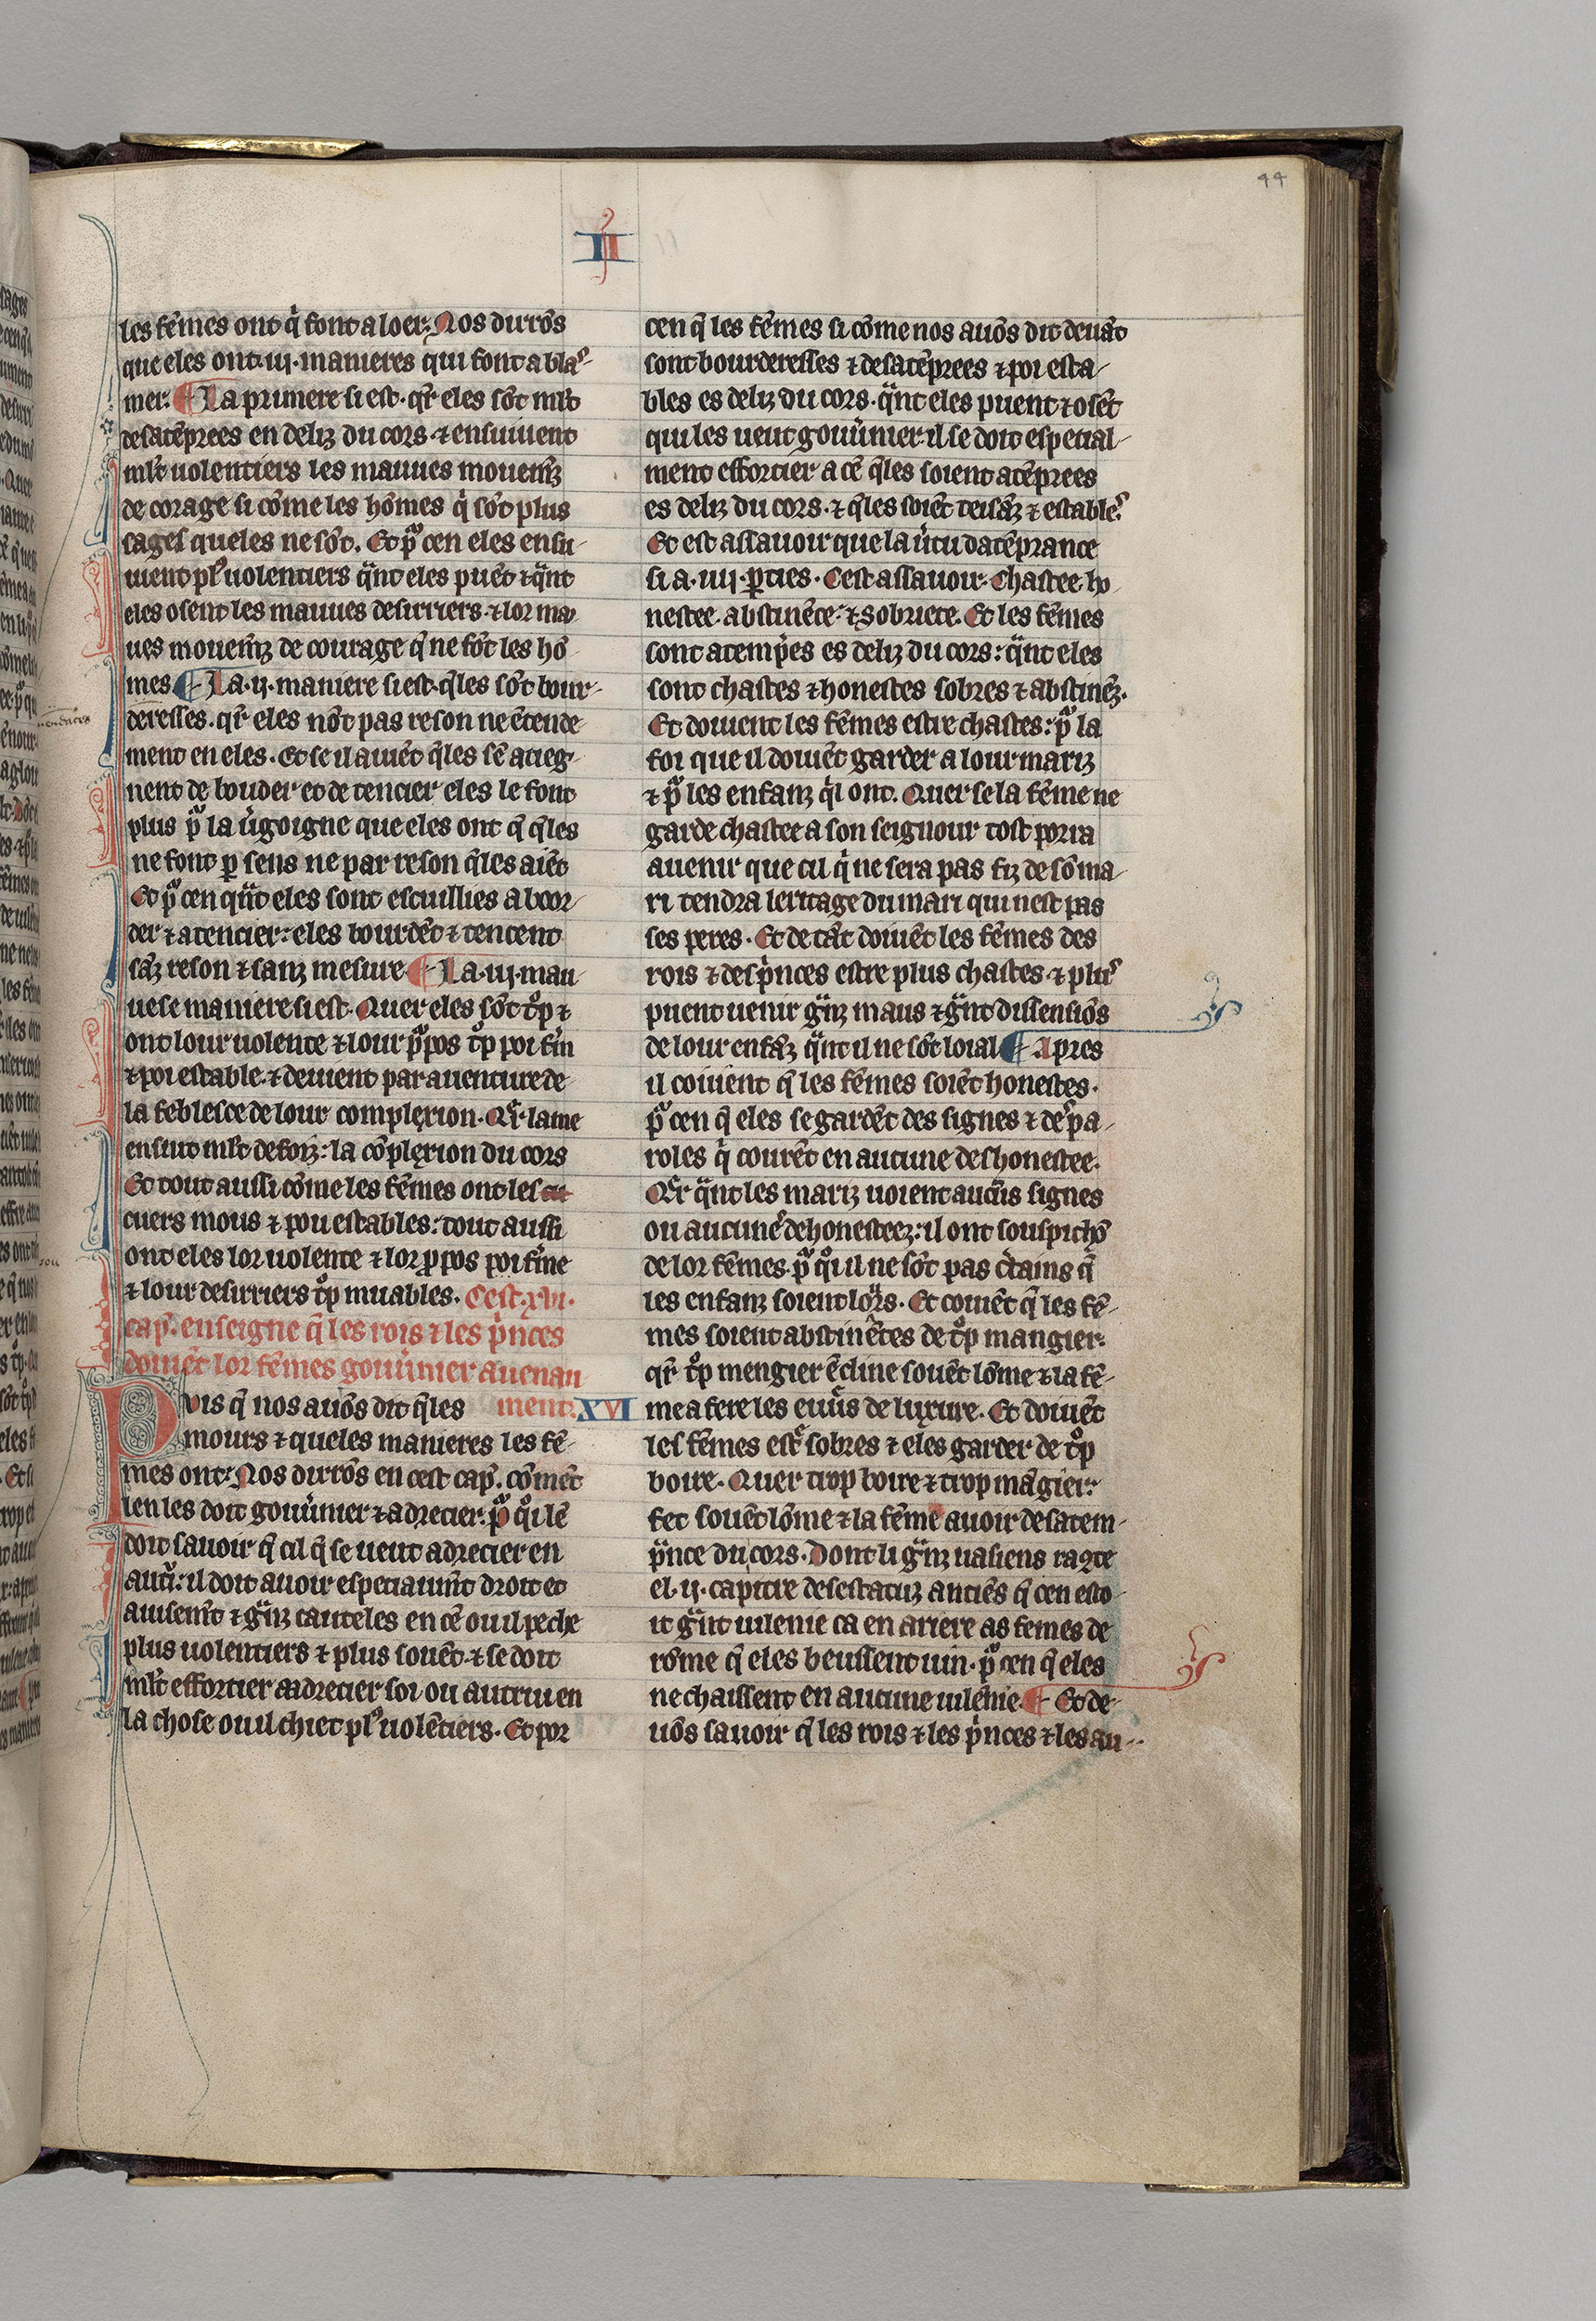 44
II
les fẽmes ont q̇ font a loer. Nos dirrõs
que eles ont .iij. manieres qui font a blas-
mer. ¶ La primere si est. qr̃ eles sõt ml̃t
desatẽprees en deliz du cors ⁊ ensuiuent
ml̃t uolentiers les mauues mouem̃z
de corage si cõme les hõmes q̇ sõt plus
sages queles ne sõt. Et pͦ cen eles ensu-
iuent plꝰ uolentiers q̈nt eles puẽt ⁊ q̈nt
eles osent les mauues desirriers ⁊ lor mau
ues mouem̃z de courage q̃ ne fõt les hõ-
mes ¶ La .ij. maniere si est. q̃les sõt bour-
deresses. qr̃ eles nõt pas reson ne ẽtende
ment en eles. Et se il auiẽt q̃les sẽ atieg-
nent de bouder et de tencier eles le font
plus pͦ la u̇goigne que eles ont q̃ q̃les
ne font ꝑ sens ne par reson q̃les aiẽt
Et pͦ cen q̈nt eles sont escuillies a boor-
der ⁊ a tencier: eles bourdẽt ⁊ tencent
sãz reson ⁊ sanz mesure ¶ La .iij. mau
uese maniere si est. Quer eles sõt tͦp ⁊
ont lour uolente ⁊ lour ꝓpos tͦp poi fṁ
⁊ poi estable. ⁊ deuient par auenture de
la feblesce de lour complexion. Qr̃ lame
ensuit ml̃t de foiz: la cõplexion du cors
Et tout aussi cõme les fẽmes ont les cu
cuers mous ⁊ pou estables: tout aussi
ont eles lor uolente ⁊ lor ꝓpos poi fṁe
⁊ lour desirriers tͦp muables. Cest .xvi.
cap̃. enseigne q̃ les rois ⁊ les p̍nces
doiuẽt lor fẽmes gouu̇nier auenau
ment. XVI
Puis q̃ nos auõs dit q̃les
mours ⁊ queles manieres les fẽ-
mes ont: Nos dirrõs en cest cap̃. cõmẽt
len les doit gouu̇nier ⁊ adrecier: pͦ qͦi lẽ
doit sauoir q̃ cil q̃ se ueut adrecier en
autṙ: il doit auoir especiaum̃t droit et
auisem̃t ⁊ g̈nz cauteles en cẽ ou il peche
plus uolentiers ⁊ plus souẽt ⁊ se doit
ml̃t efforcier a adrecier soi ou autrui en
la chose ou il chiet plꝰ uolẽtiers. Et por
cen q̃ les fẽmes si cõme nos auõs dit deuãt
sont bourderesses ⁊ desatẽprees ⁊ poi esta-
bles es deliz du cors. q̈nt eles puent ⁊ osẽt
qui les ueut gouu̇nier: il se doit espetial-
ment efforcier a cẽ q̃les soient atẽprees
es deliz du cors. ⁊ q̃les soiẽt teisãz ⁊ estables.
Et est assauoir que la u̇tu datẽprance
si a .iiij. ꝑties. Cest assauoir. Chastee. ho-
nestee. abstinẽce. ⁊ sobriete. Et les fẽmes
sont atemp̍es es deliz du cors: q̈nt eles
sont chastes ⁊ honestes sobres ⁊ abstinẽz.
Et doiuent les fẽmes estre chastes: pͦ la
foi que il doiuẽt garder a lour mariz
⁊ pͦ les enfanz q̇l ont. Quer se la fẽme ne
garde chastee a son seignour tost porra
auenir que cil q̇ ne sera pas fiz de sõ ma-
ri tendra leritage du mari qui nest pas
ses peres. Et de tãt doiuẽt les fẽmes des
rois ⁊ des p̍nces estre plus chastes. ⁊ plus
puent uenir g̈nz maus ⁊ g̈nt dissensiõs
de lour enfãz q̈nt il ne sõt loial ¶ Apres
il couient q̃ les fẽmes soiẽt honestes.
pͦ cen q̃ eles se gardẽt des signes ⁊ des pa-
roles q̇ courẽt en aucune deshonestee.
Qr̃ q̈nt les mariz uoient aucũs signes
ou aucunes dehonesteez: il ont souspichõ
de lor fẽmes. pͦ qͦi il ne sõt pas c̃tains q̃
les enfanz soient lors. Et couiẽt q̃ les fẽ-
mes soient abstinẽtes de tͦp mangier:
qr̃ tͦp mengier ẽcline souẽt lõme ⁊ la fẽ-
me a fere les euu̇s de luxure. Et doiuẽt
les fẽmes estr̃ sobres ⁊ eles garder de tͦp
boire. Quer trop boire ⁊ trop mãgier:
fet souẽt lõme ⁊ la fẽme auoir desatem-
p̈nce du cors. Dont li g̈nz ualiens racte
el .ij. capitre des estatuz anciẽs q̃ cen esto-
it g̈nt uilenie ca en ariere as femes de
rõme q̃ eles beussent uin. pͦ cen q̃ eles
ne chaissent en aucune uilẽnie. ¶ Et de-
uõs sauoir q̃ les rois ⁊ les p̍nces ⁊ les au-